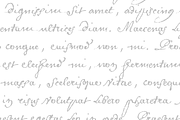 dignissim sit amet adipiscing
entum ultrices diam. Maecenas l
congue, euismod non, mi. Pro
est eleifend mi, non fermentum
massa, scelerisque vitae, consequ
in risus volutpat libero pharetra